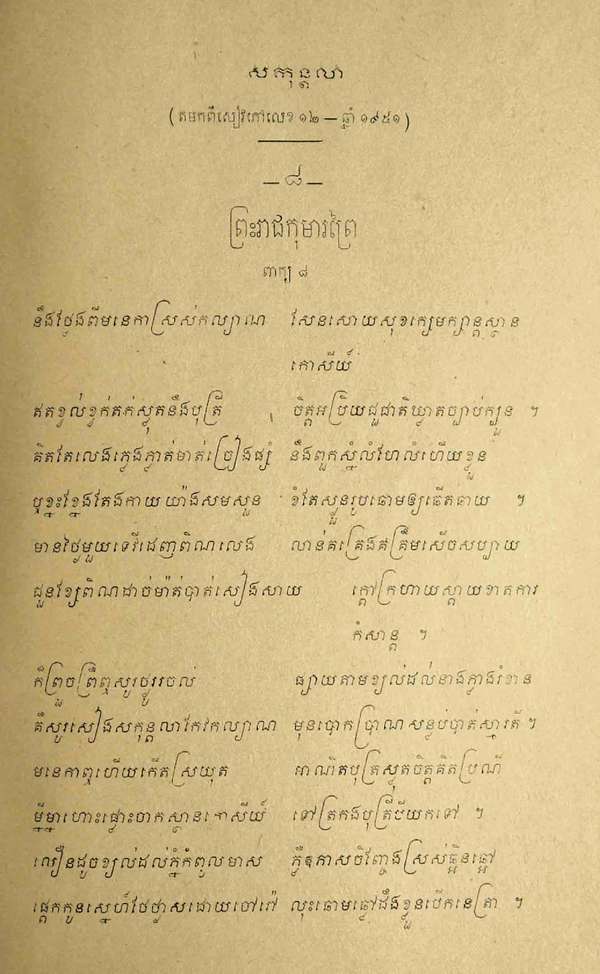 សកុន្តលា
(តមកពីសៀវភៅលេខ ១២ — ឆ្នាំ ១៩៥១)
—៨—
ព្រះរាជកុមារព្រៃ
ពាក្យ ៨
នឹងថ្លែងពីមនេកាស្រស់កល្យាណ សែនសោយសុខក្សេមក្សាន្តស្ថាន
កោសីយ៍
ឥតខ្វល់ខ្វក់តក់ស្លុតនឹងបុត្រី ចិត្តអប្រិយជួជាតិឃ្វាតច្បាប់ក្បួន ។
គិតតែលេងក្មេងភ្ញាត់មាត់ច្រៀងផ្សំ នឹងពួកស្នំលំហែលំហើយខ្លួន
ប្រុងខ្នះខ្នែងតែងកាយយ៉ាងសមសួន ខំតែស្ងួនរូបឆោមឲ្យឆើតឆាយ ។
មានថ្ងៃមួយទេវីដេញពិណលេង លាន់គគ្រែងគគ្រឹមសើចសប្បាយ
ជួនខ្សែពិណដាច់ម៉ាត់បាត់សៀងសាយ ក្ដៅក្រហាយស្ដាយខាតការ
កំសាន្ត ។
ក៏ព្រួចព្រឺឮសូរថ្ងូររចល់ ផ្សាយតាមខ្យល់ដល់នាងក្នុងរំខាន
គឺសូរសៀងសកុន្តលាកែវកល្យាណ មុនបោកប្រាណសន្លប់បាត់ស្មារតី ។
មនេកាឮហើយកើតស្រយុត អាណិតបុត្រស្លូតចិត្តគិតប្រណី
ម្នីម្នាហោះផ្លោះចាកស្ថានកោសីយ៍ ទៅត្រកងបុត្រីប៉ីយកទៅ ។
លឿនដូចខ្យល់ដល់ភ្នំកំពូលមាស ភ្នឺឱកាសចិញ្ចែងស្រស់ធ្អិនឆ្អៅ
ផ្ដេកកូនស្នេហ៍ថែថ្នាសដោយចៅពៅ លុះឆោមឆ្លៅដឹងខ្លួនបើកនេត្រា ។